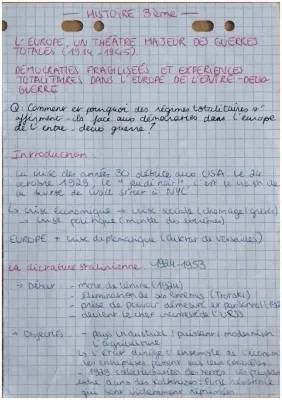 HISTOIRE 3ème
L'EUROPE, UN THÉÂTRE MAJEUR DES GUERRES
TOTALES (1914-1945)
DÉMOCRATIES FRAGILISÉES ET EXPÉRIENCES
TOTALITAIRES DANS L'EUROPE DE L'ENTRE-DEUX-
GUERRE
Q: Comment et pourquoi des régimes totalitaires s'
affirment-ils face aux démocraties dans l'europe
de l'entre-deux guerre?
Introduction:
La crise des années 30 débute aux USA. Le 24
octobre 1929, le "jeudi noir" c'est le krash de
la bourse de Wall street à NYC
La crise économique → crise sociale (chomage/grèves)
→ crise politique (montée des extrêmes)
EUROPE + crise diplomatique (diktat de Versailles)
La dictature stalinienne 1924-1953
→ Début - mort de Lénine (1924)
- élimination de ses ennemis (Trotski)
- prise de pouvoir
- devient le chef de l'URSS
→ Objectifs - pays industriel / puissant / moderniser
l'agriculture
L'état dirige l'ensemble de l'économie
les entreprises
- 1929 collectivisation des terres
dans des kolkhozes
qui sont violemment